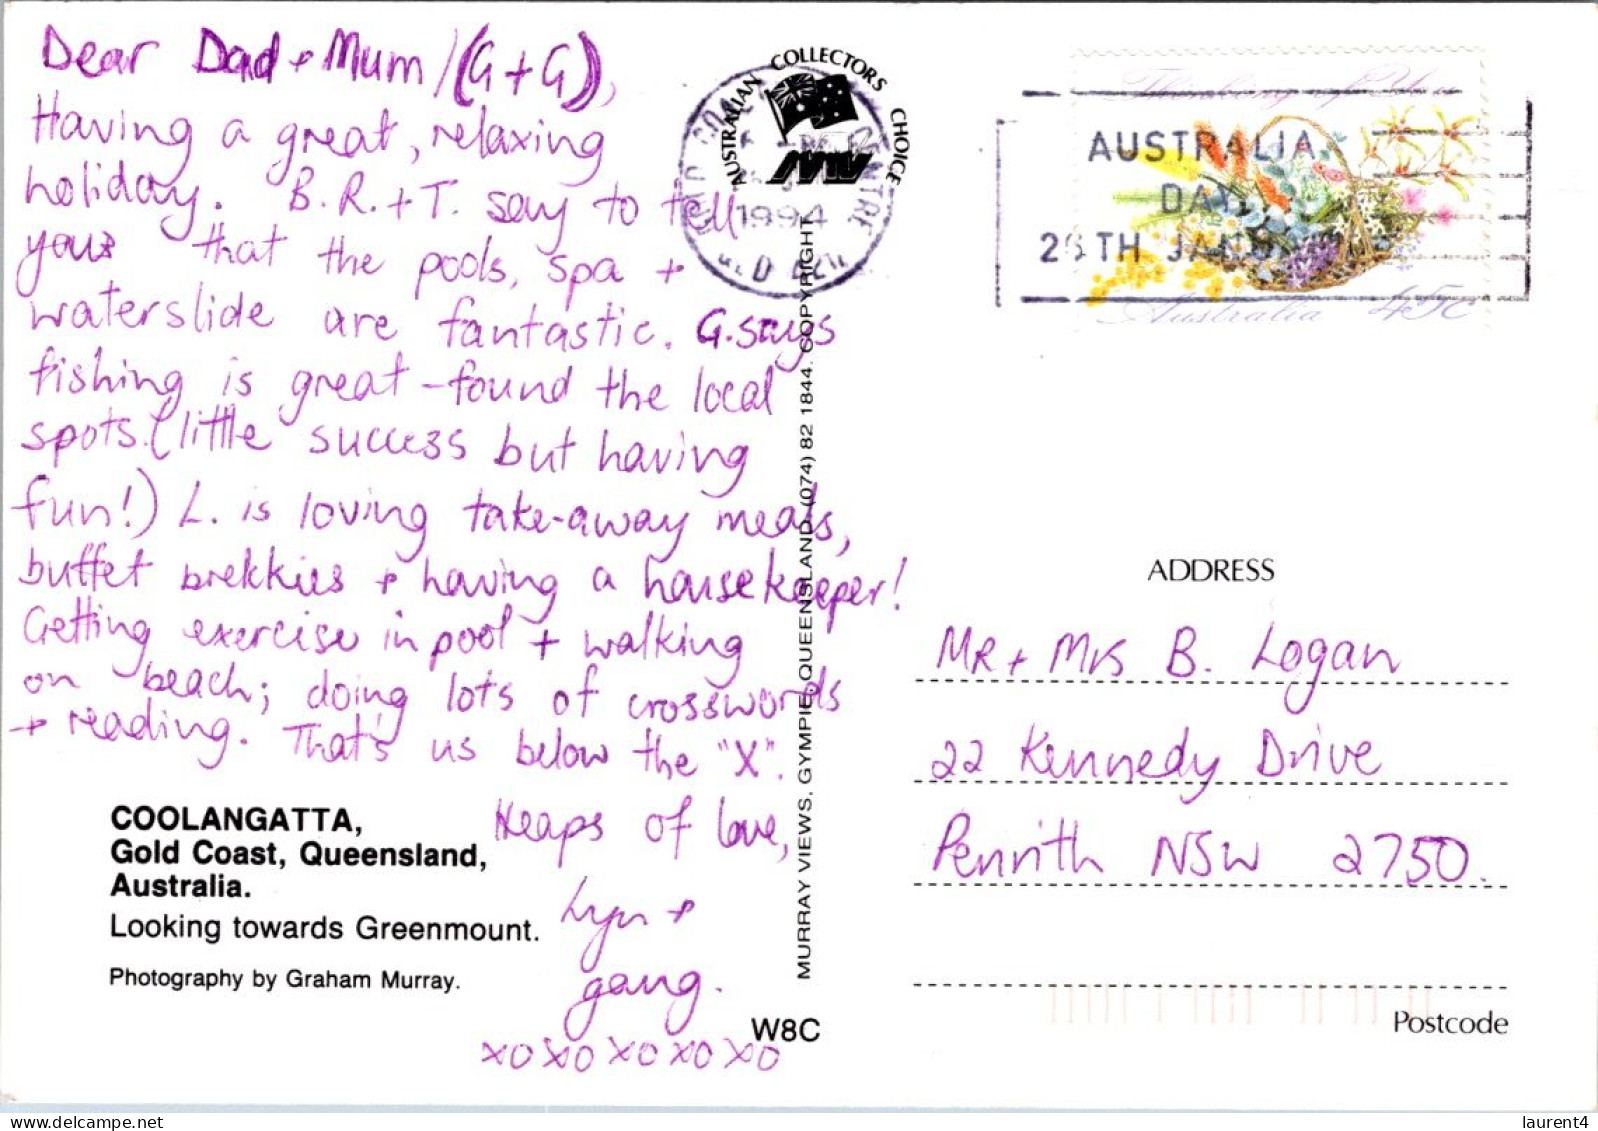 Dear Dad + Mum /(G + G),
Having a great, relaxing
holiday. B. R. + T. say to tell
yous that the pools, spa +
waterslide are fantastic. G. says
fishing is great - found the local
spots. (little success but having
fun!) L. is loving take-away meals,
buffet brekkies + having a housekeeper!
Getting exercise in pool + walking
on beach; doing lots of crosswords
+ reading. That's us below the "X".
Heaps of love,
Lyn +
gang.
xo xo xo xo xo
COOLANGATTA,
Gold Coast, Queensland,
Australia.
Looking towards Greenmount.
Photography by Graham Murray.
W8C
AUSTRALIAN COLLECTORS CHOICE
1994
MURRAY VIEWS, GYMPIE, QUEENSLAND (074) 82 1844. COPYRIGHT
Thinking of You
AUSTRALIA
DAY
26TH JANUARY
Australia 45c
ADDRESS
Mr + Mrs B. Logan
22 Kennedy Drive
Penrith NSW 2750.
Postcode
laurent4